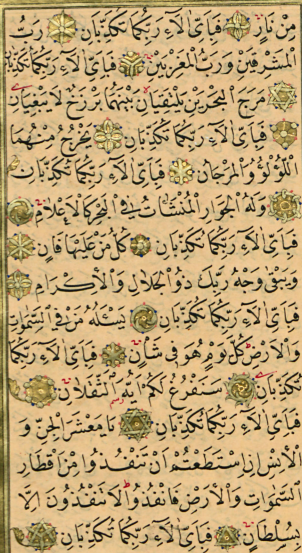 مِنْ نَارٍ فَبِاَىِّ اٰلَآءِ رَبِّكُمَا تُكَذِّبَانِ رَبُّ
الْمَشْرِقَيْنِ وَرَبُّ الْمَغْرِبَيْنِ فَبِاَىِّ اٰلَآءِ رَبِّكُمَا تُكَذِّبَانِ
مَرَجَ الْبَحْرَيْنِ يَلْتَقِيَانِ بَيْنَهُمَا بَرْزَخٌ لَا يَبْغِيَانِ
فَبِاَىِّ اٰلَآءِ رَبِّكُمَا تُكَذِّبَانِ يَخْرُجُ مِنْهُمَا
اللُّؤْلُؤُ وَالْمَرْجَانُ فَبِاَىِّ اٰلَآءِ رَبِّكُمَا تُكَذِّبَانِ
وَلَهُ الْجَوَارِ الْمُنْشَاٰتُ فِي الْبَحْرِ كَالْاَعْلَامِ
فَبِاَىِّ اٰلَآءِ رَبِّكُمَا تُكَذِّبَانِ كُلُّ مَنْ عَلَيْهَا فَانٍ
وَيَبْقٰى وَجْهُ رَبِّكَ ذُو الْجَلَالِ وَالْاِكْرَامِ
فَبِاَىِّ اٰلَآءِ رَبِّكُمَا تُكَذِّبَانِ يَسْئَلُهُ مَنْ فِي السَّمٰوَاتِ
وَالْاَرْضِ كُلَّ يَوْمٍ هُوَ فِي شَاْنٍ فَبِاَىِّ اٰلَآءِ رَبِّكُمَا
تُكَذِّبَانِ سَنَفْرُغُ لَكُمْ اَيُّهَ الثَّقَلَانِ
فَبِاَىِّ اٰلَآءِ رَبِّكُمَا تُكَذِّبَانِ يَا مَعْشَرَ الْجِنِّ وَ
الْاِنْسِ اِنِ اسْتَطَعْتُمْ اَنْ تَنْفُذُوا مِنْ اَقْطَارِ
السَّمٰوَاتِ وَالْاَرْضِ فَانْفُذُوا لَا تَنْفُذُونَ اِلَّا
بِسُلْطَانٍ فَبِاَىِّ اٰلَآءِ رَبِّكُمَا تُكَذِّبَانِ